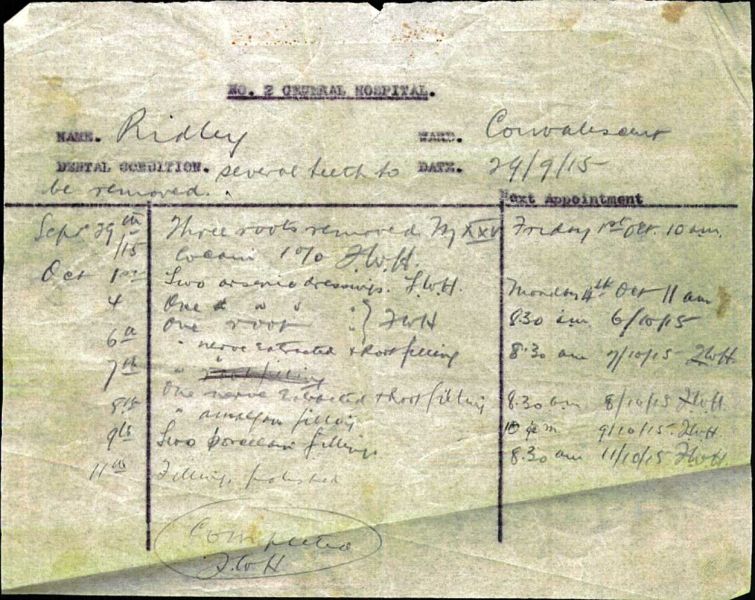 NO. 2 GENERAL HOSPITAL.
NAME. Ridley WARD. Convalescent
DENTAL CONDITION. several teeth to DATE. 29/9/15
be removed.
Next Appointment
Sept 29th Three roots removed. XXV Friday 1st Oct. 10 am.
/15 Cocain 1% F.W.H.
Oct 1st Two arsenic dressings. F.W.H. Monday 4th Oct 11 am
4 One " " " 8.30 am 6/10/15
One root " } FWH
6th " nerve extracted & root filling 8.30 am 7/10/15 FWH
7th " root filling
One nerve extracted & root filling 8.30 am 8/10/15 FWH.
8th " amalgam filling
9th Two porcelain fillings 9/10/15. FWH.
11th Fillings polished 8.30 am 11/10/15 FWH.
Completed
FWH